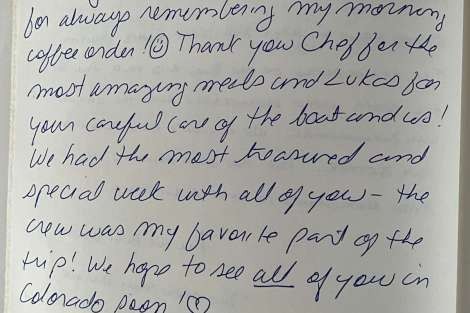 for always remembering my morning
coffee order! ☺ Thank you Chef for the
most amazing meals and Lukas for
your careful care of the boat and us!
We had the most treasured and
special week with all of you - the
crew was my favorite part of the
trip! We hope to see all of you in
Colorado soon! ♡